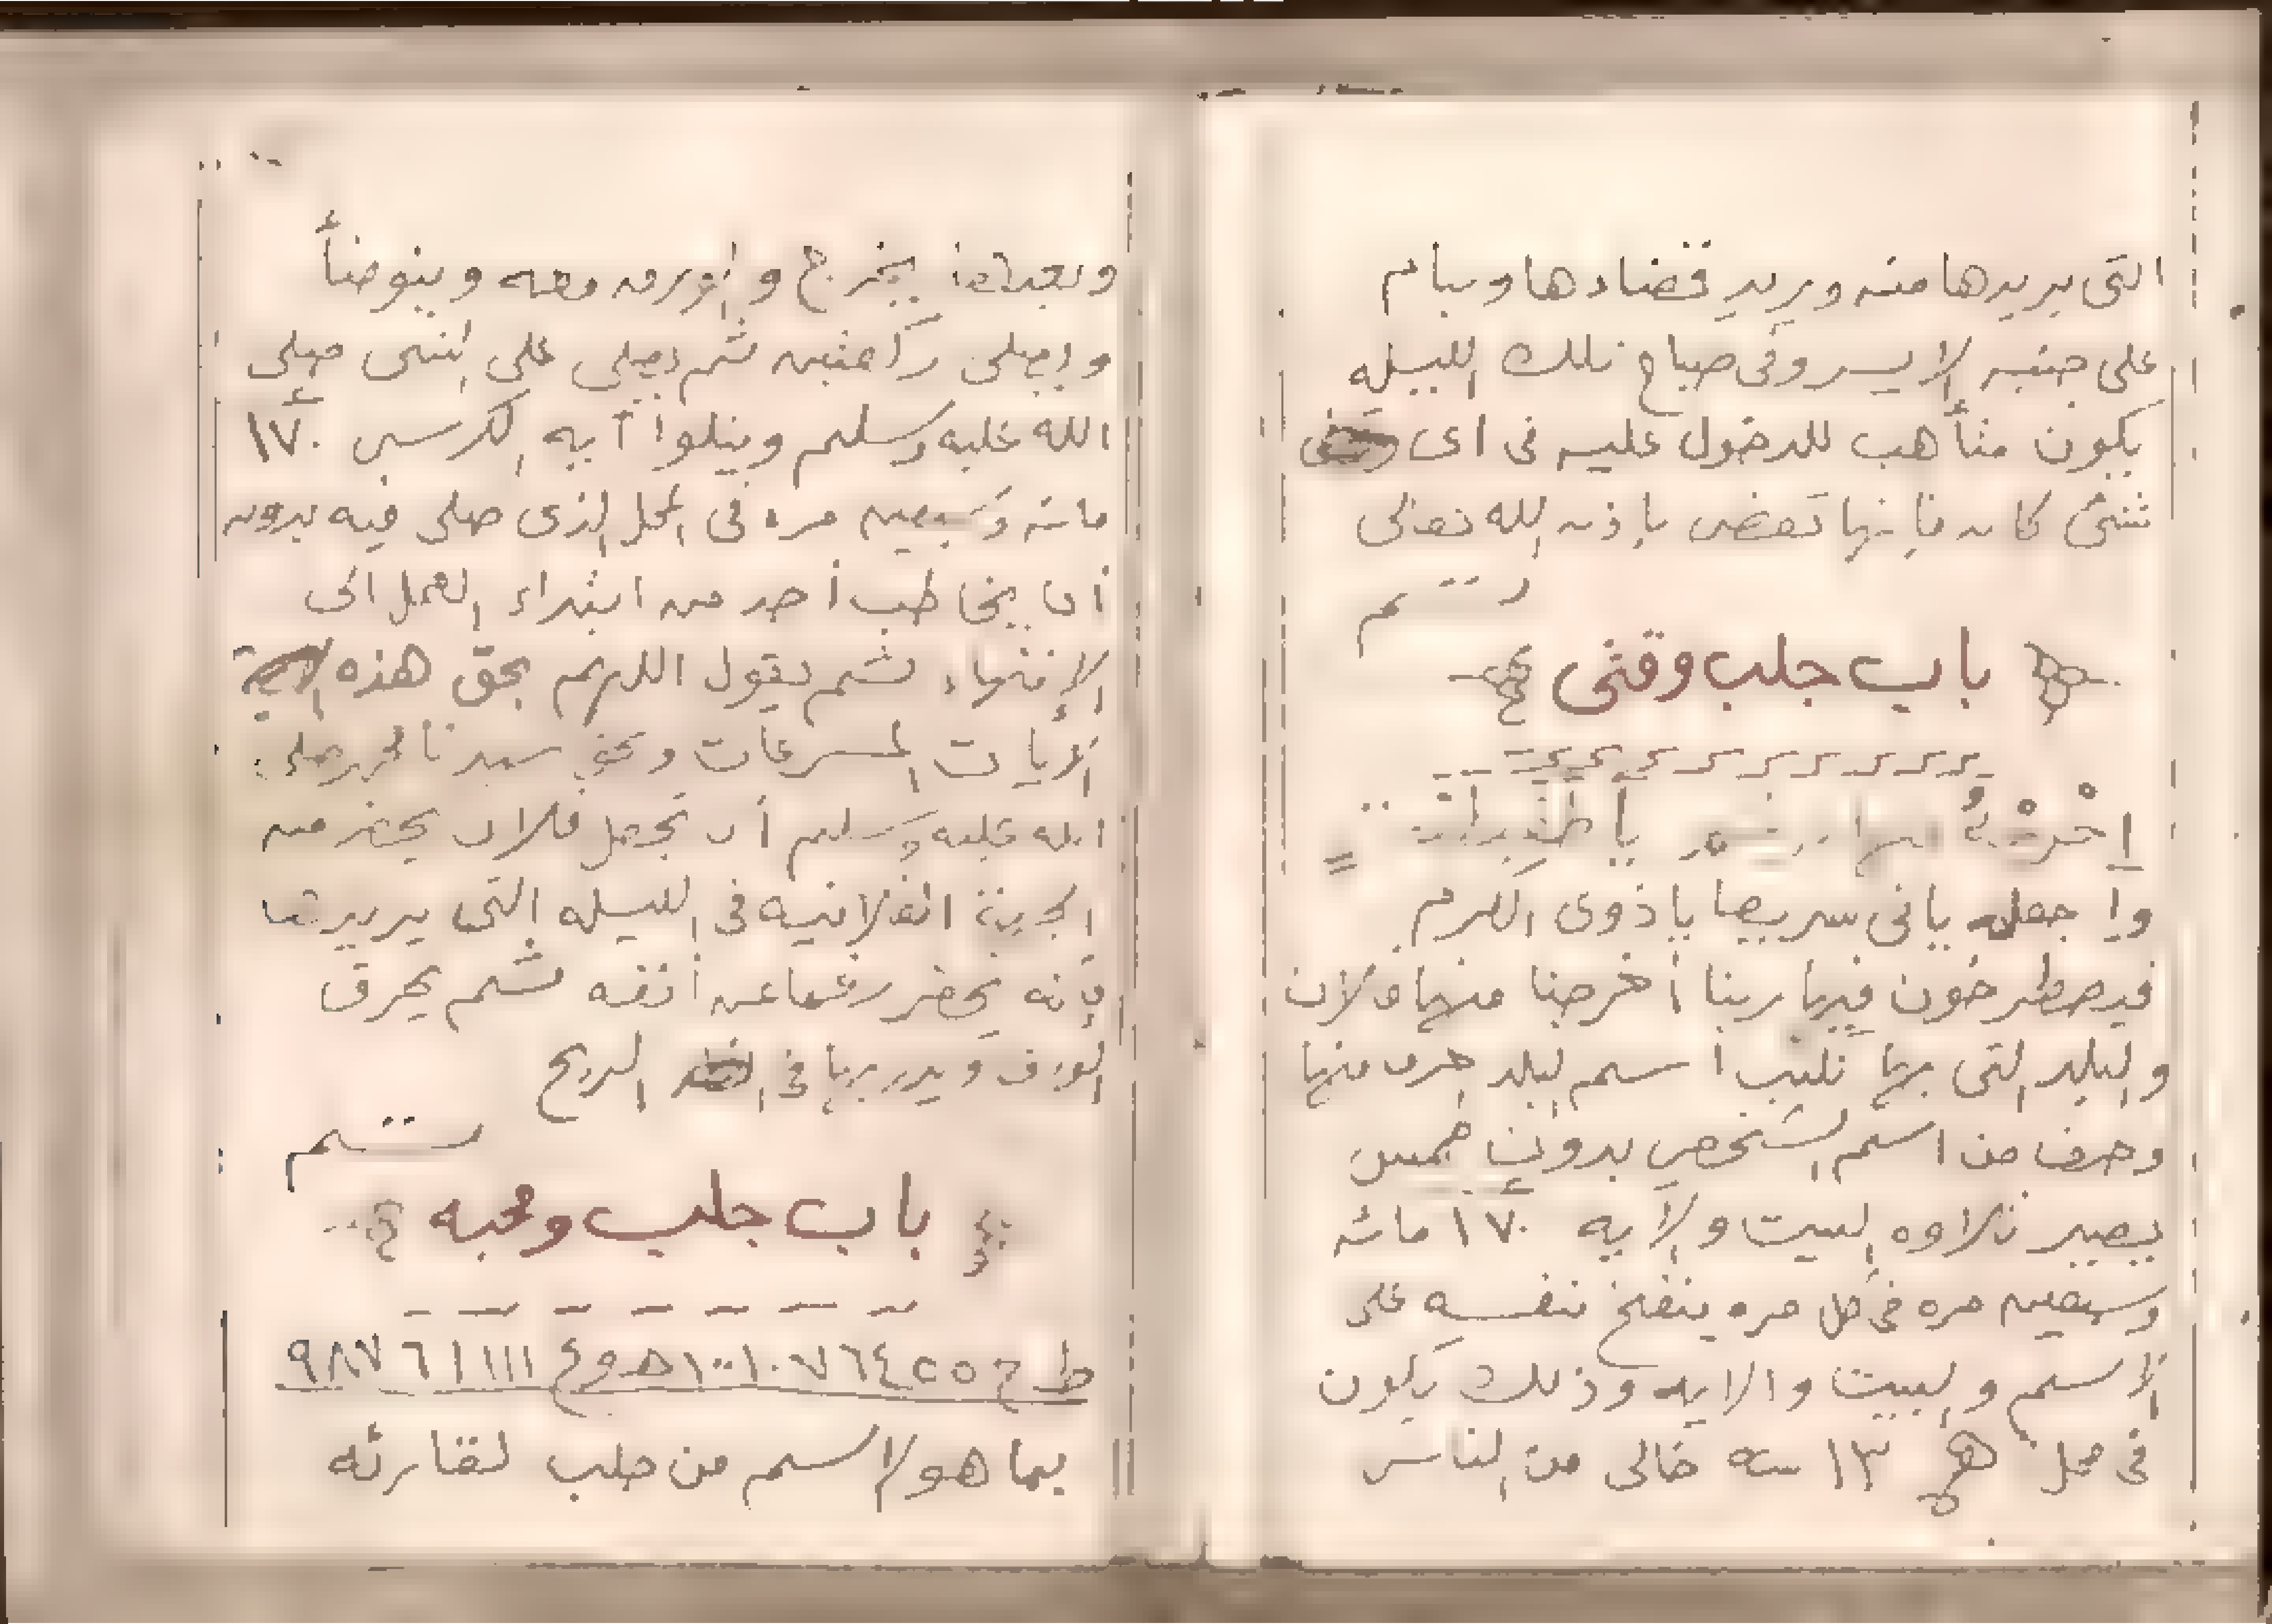 التى يريدها منه ويريد قضاءها وينام
على جنبه الايسر وفى صباح تلك الليله
يكون متأهب للدخول عليه فى اى
شئ كان فإنها تقضى بإذن الله تعالى
تم
باب جلب وقتى
وا جعله يانى سريعا ياذوى الكرم
فيصطرخون فيها ربنا أخرجنا منها فلان
والبلد التى بها تكتب أسم البلد حرف منها
وحرف من اسم الشخص بدون
يصير تلاوه البيت والآيه ١٧٠ مائه
وسبعين مره فى كل مره ينفخ بنفسه على
الاسم والبيت والايه وذلك يكون
فى محل ١٣ سنه خالى من الناس
وبعدها يخرج والورق معه ويتوضأ
ويصلى ركعتين ثم يصلى على النبى صلى
الله عليه وسلم ويتلوا آيه الكرسى ١٧٠
مائه وسبعين مره فى المحل الذى صلى فيه بدون
أن يخاطب أحد من ابتداء العمل الى
الإنتهاء ثم يقول اللهم بحق هذه
الآيات المسرعات وبحق سيدنا محمد صلى
الله عليه وسلم أن تجعل فلان يحضر من
الجهة الفلانيه فى الليله التى يريدها
فإنه يحضر رغما عن أنفه ثم يحرق
الورق ويدريها فى الريح
تم
باب جلب ومحبه
ط ح ٥ ٢ ٢ ٤ ٦ ٧ ١٠ ١٠٠ ه و ع ١١١ ١ ٦ ٧ ٨ ٩
بما هو لاسم من جلب لقارئه